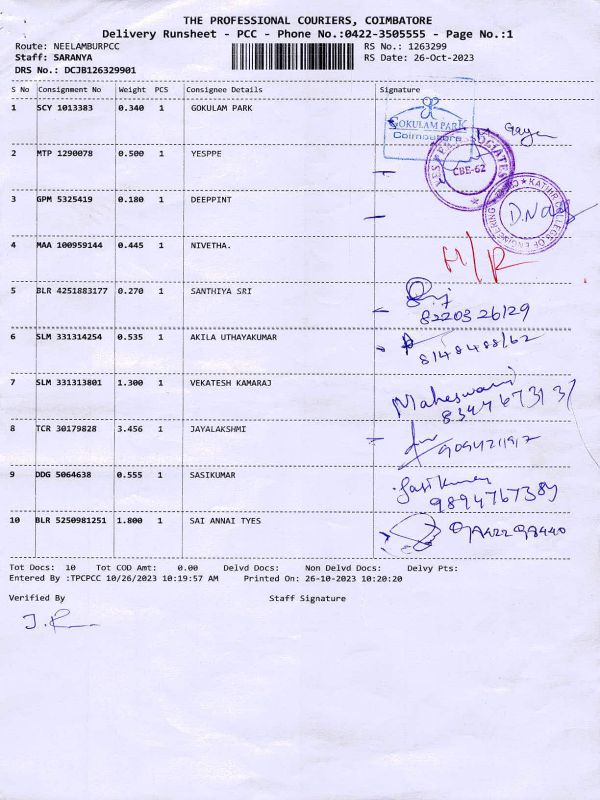 THE PROFESSIONAL COURIERS, COIMBATORE
Delivery Runsheet - PCC - Phone No.:0422-3505555 - Page No.:1
Route: NEELAMBURPCC RS No.: 1263299
Staff: SARANYA RS Date: 26-Oct-2023
DRS No.: DCJB126329901
S No Consignment No Weight PCS Consignee Details Signature
1 SCY 1013383 0.340 1 GOKULAM PARK
GOKULAM PARK
Coimbatore
2 MTP 1290078 0.500 1 YESPPE
CBE-62
3 GPM 5325419 0.180 1 DEEPPINT
4 MAA 100959144 0.445 1 NIVETHA.
5 BLR 4251883177 0.270 1 SANTHIYA SRI
8220326129
6 SLM 331314254 0.535 1 AKILA UTHAYAKUMAR
8148488162
7 SLM 331313801 1.300 1 VEKATESH KAMARAJ
Maheswari
8 TCR 30179828 3.456 1 JAYALAKSHMI
9 DDG 5064638 0.555 1 SASIKUMAR
Sasikumar
9894767389
10 BLR 5250981251 1.800 1 SAI ANNAI TYES
Tot Docs: 10 Tot COD Amt: 0.00 Delvd Docs: Non Delvd Docs: Delvy Pts:
Entered By :TPCPCC 10/26/2023 10:19:57 AM Printed On: 26-10-2023 10:20:20
Verified By Staff Signature